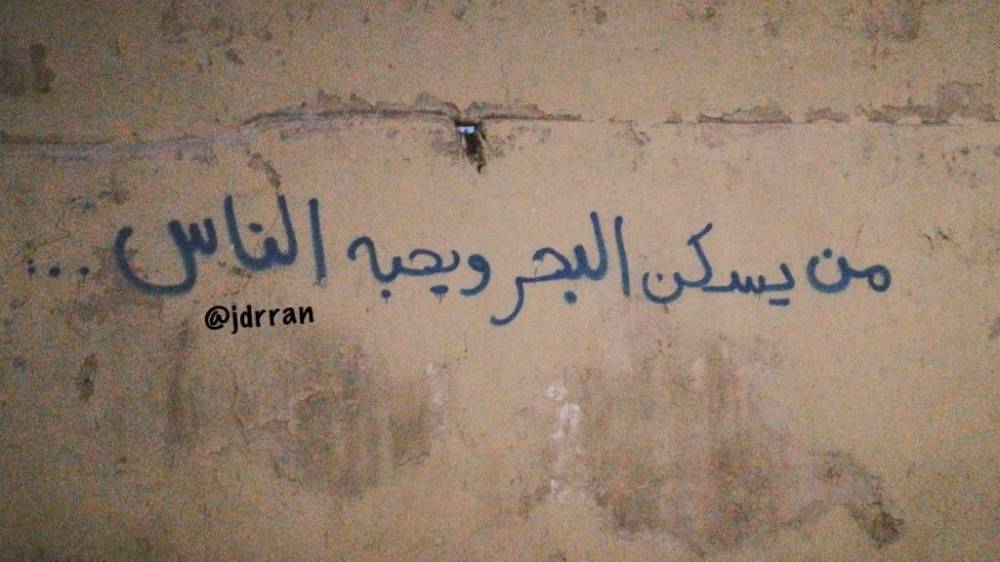 من يسكن البحر ويحبه الناس ...
@jdrran